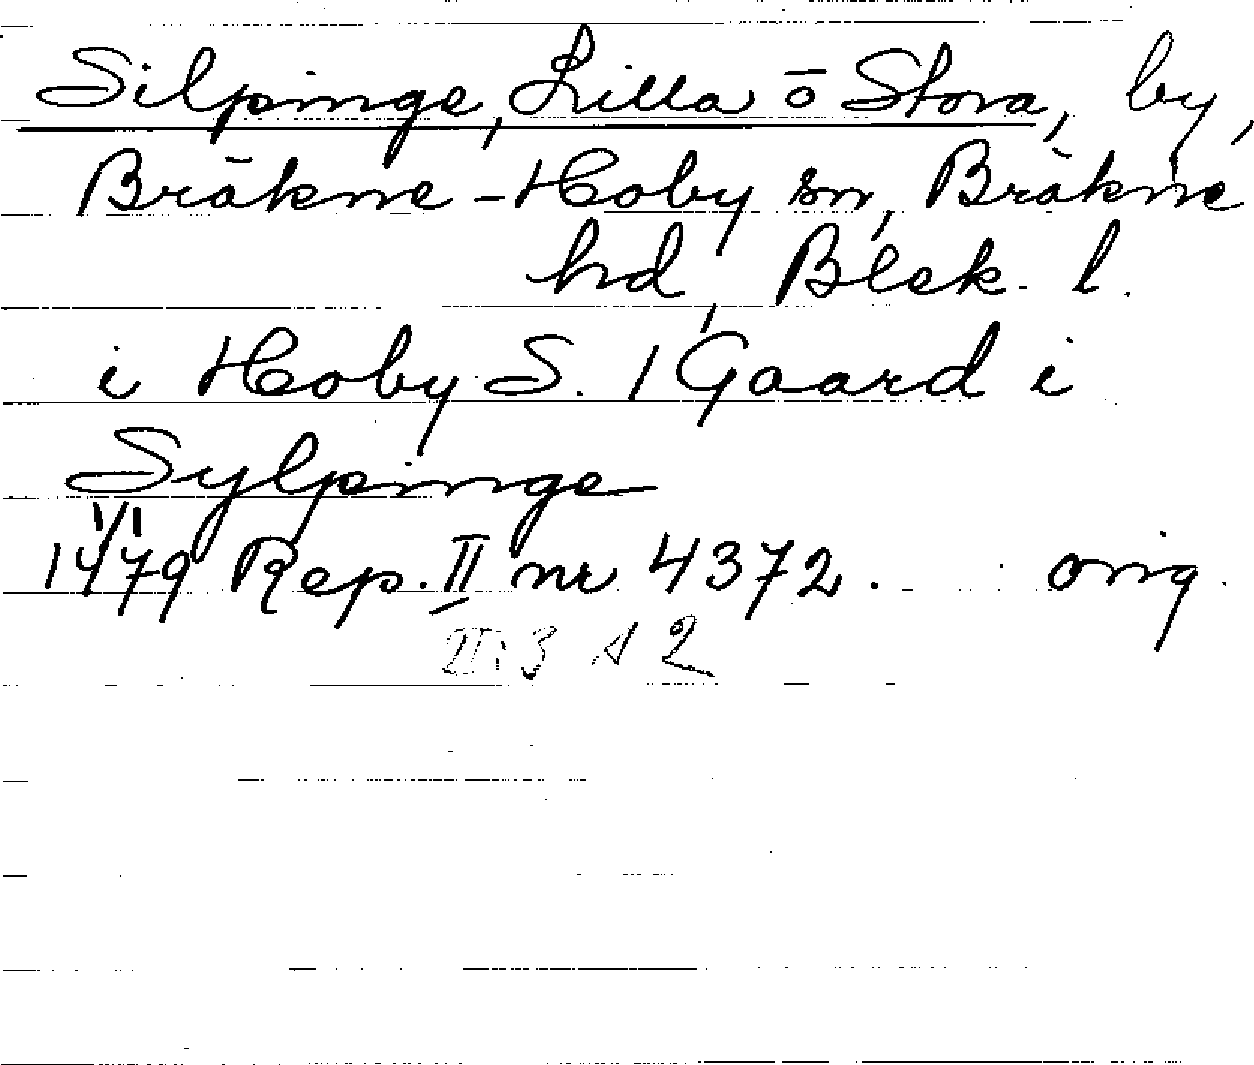 Silpinge, Lilla o Stora, by,
Bräkne-Hoby sn, Bräkne
hd, Blek. l.
i Hoby S. 1 Gaard i
Sylpinge
1/1
1479 Rep. II nr 4372. orig.
II:3 s 2